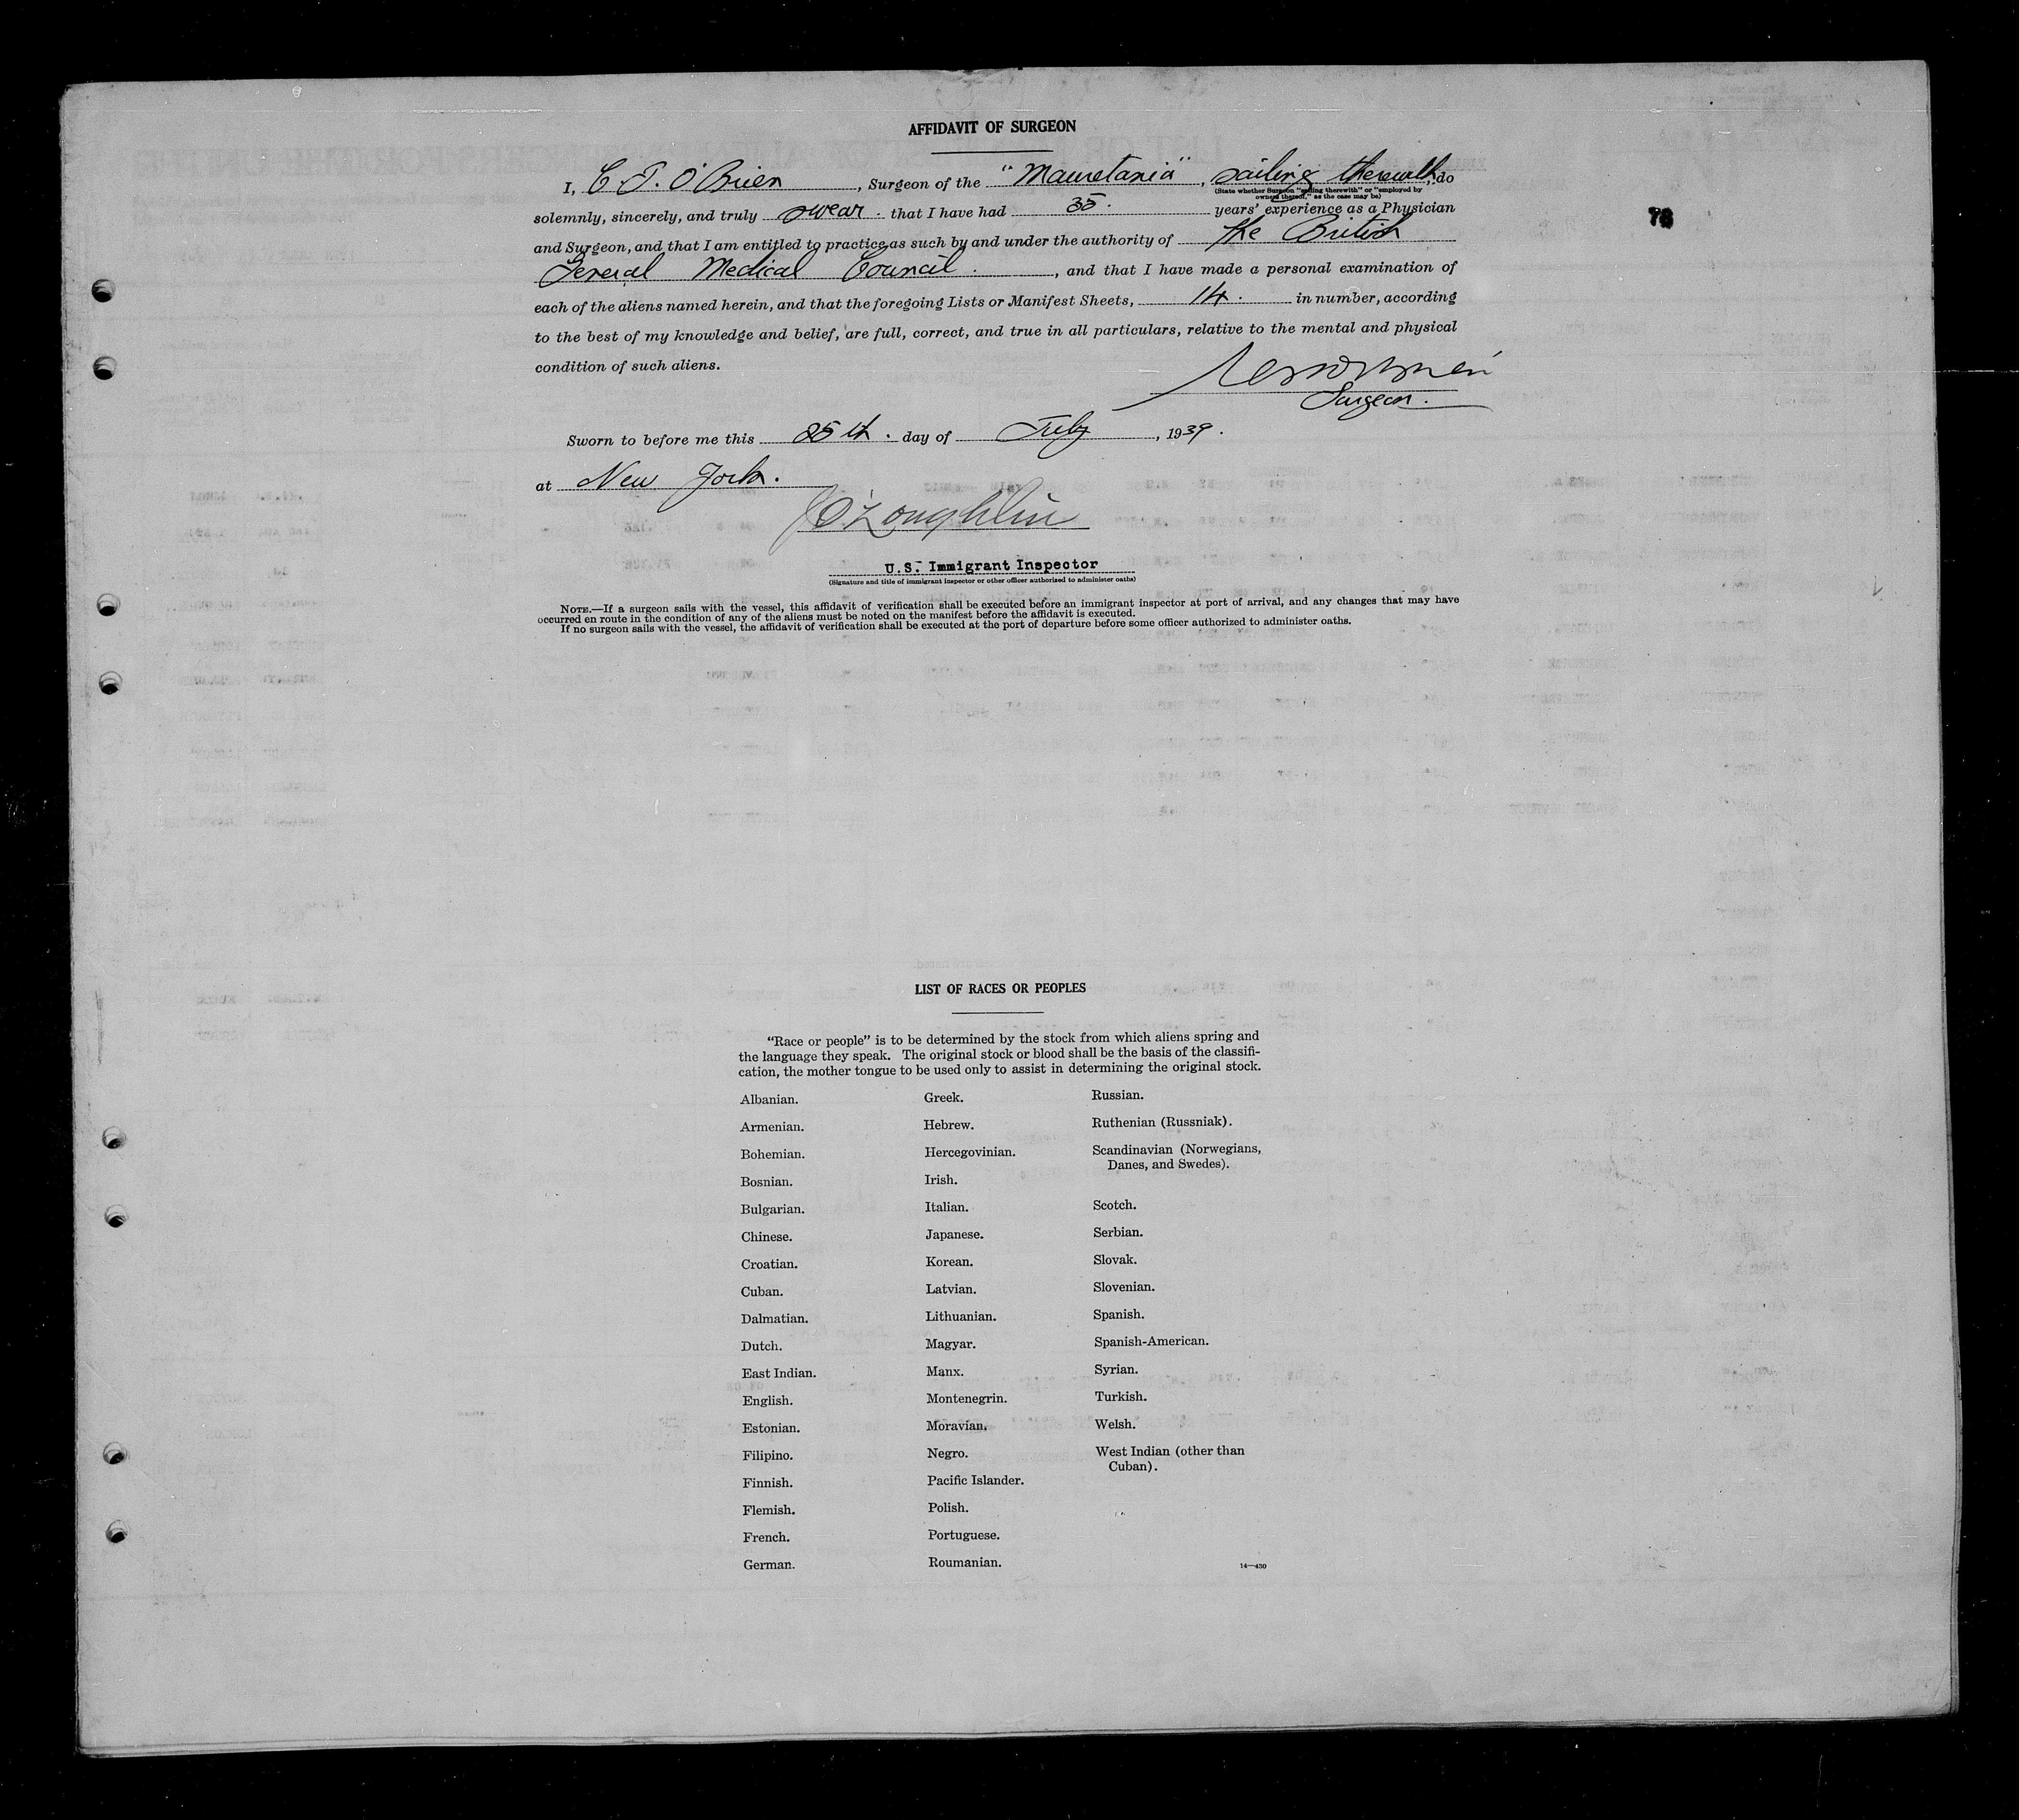 AFFIDAVIT OF SURGEON
I, C. T. O'Brien, Surgeon of the "Mauretania", sailing therewith, do
(State whether Surgeon "sailing therewith" or "employed by
owners thereof," as the case may be)
solemnly, sincerely, and truly swear. that I have had 35. years' experience as a Physician
78
and Surgeon, and that I am entitled to practice as such by and under the authority of the British
General Medical Council., and that I have made a personal examination of
each of the aliens named herein, and that the foregoing Lists or Manifest Sheets, 14. in number, according
to the best of my knowledge and belief, are full, correct, and true in all particulars, relative to the mental and physical
condition of such aliens.
Surgeon.
Sworn to before me this 25th. day of July, 1939.
at New York.
J O'Loughlin
U.S. Immigrant Inspector
(Signature and title of immigrant inspector or other officer authorized to administer oaths)
NOTE.—If a surgeon sails with the vessel, this affidavit of verification shall be executed before an immigrant inspector at port of arrival, and any changes that may have
occurred en route in the condition of any of the aliens must be noted on the manifest before the affidavit is executed.
If no surgeon sails with the vessel, the affidavit of verification shall be executed at the port of departure before some officer authorized to administer oaths.
LIST OF RACES OR PEOPLES
"Race or people" is to be determined by the stock from which aliens spring and
the language they speak. The original stock or blood shall be the basis of the classifi-
cation, the mother tongue to be used only to assist in determining the original stock.
Albanian.
Armenian.
Bohemian.
Bosnian.
Bulgarian.
Chinese.
Croatian.
Cuban.
Dalmatian.
Dutch.
East Indian.
English.
Estonian.
Filipino.
Finnish.
Flemish.
French.
German.
Greek.
Hebrew.
Hercegovinian.
Irish.
Italian.
Japanese.
Korean.
Latvian.
Lithuanian.
Magyar.
Manx.
Montenegrin.
Moravian.
Negro.
Pacific Islander.
Polish.
Portuguese.
Roumanian.
Russian.
Ruthenian (Russniak).
Scandinavian (Norwegians,
Danes, and Swedes).
Scotch.
Serbian.
Slovak.
Slovenian.
Spanish.
Spanish-American.
Syrian.
Turkish.
Welsh.
West Indian (other than
Cuban).
14—430